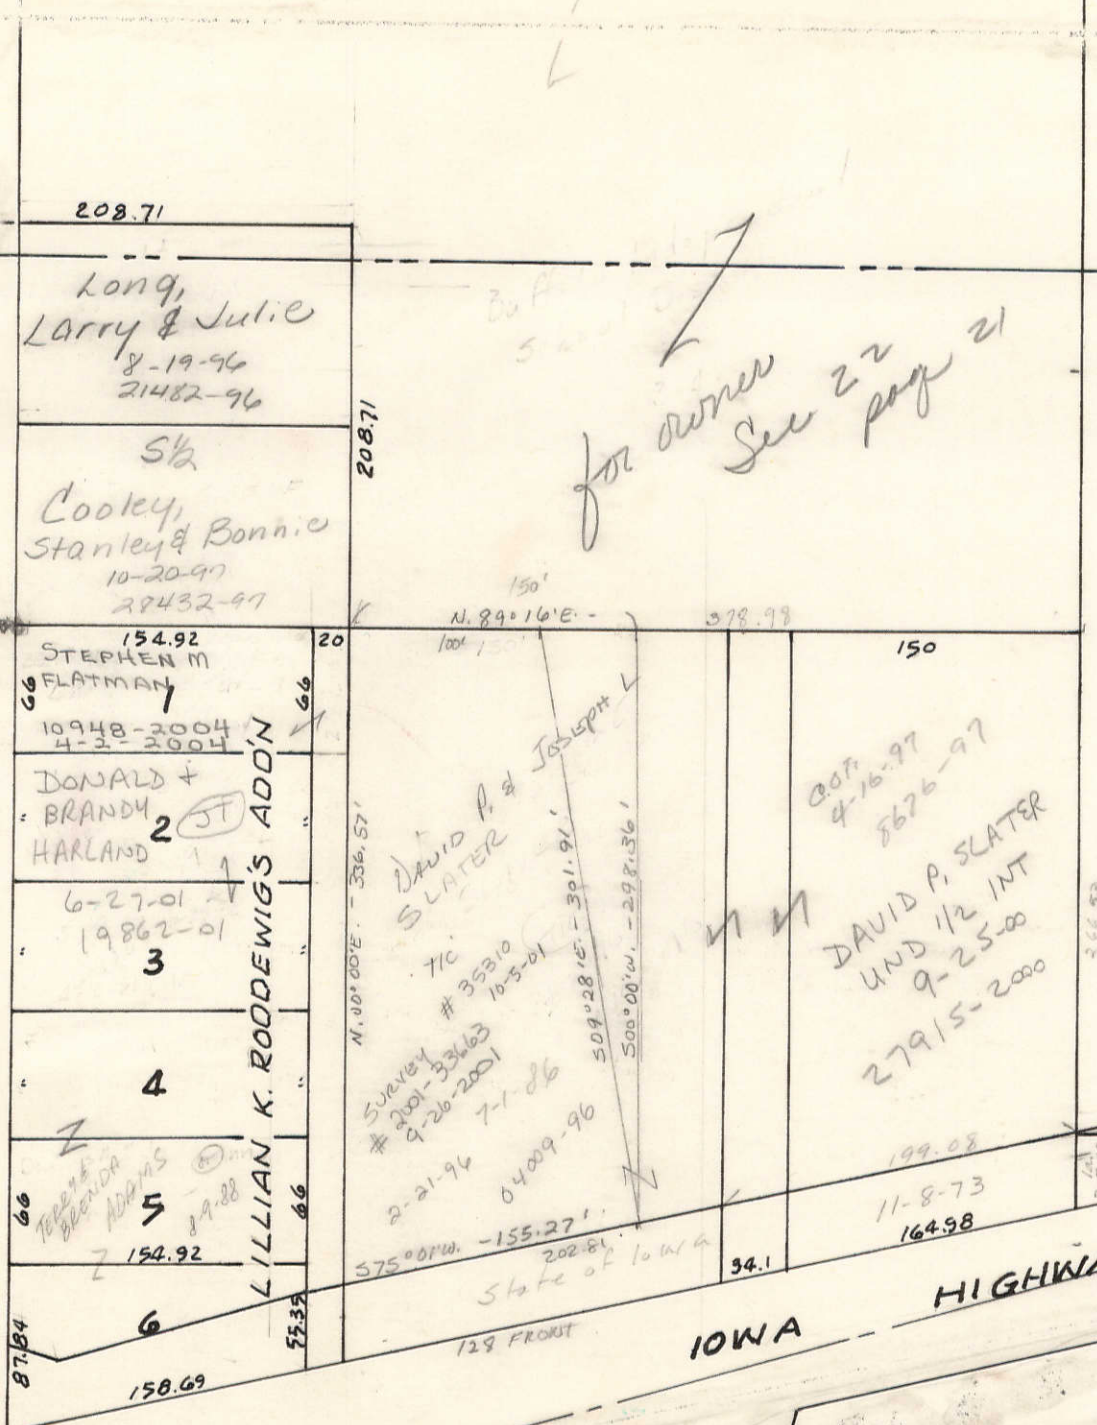 208.71
Long,
Larry & Julie
8-19-96
21482-96
208.71
S½
Cooley,
Stanley & Bonnie
10-20-97
28432-97
for owner
See 22
page 21
150'
N. 89°16'E. -
378.98
100'
150
154.92
20
STEPHEN M
FLATMAN
1
66
66
10948-2004
4-2-2004
DONALD +
BRANDY
2
JT
HARLAND
6-27-01
19862-01
3
4
5
TERRY &
BRENDA
ADAMS
8-9-88
66
66
154.92
6
87.84
55.35
158.69
LILLIAN K. RODEWIG'S ADD'N
N. 00°00'E. - 336.57'
DAVID P. & JOSEPH
SLATER
T/C
# 35310
10-5-01
SURVEY
# 2001-33663
9-26-2001
7-1-86
2-21-96
04009-96
S09°28'E. - 301.91'
S00°00'W. - 298.36'
S75°01'W. - 155.27'
202.81
State of Iowa
128 FRONT
34.1
4-16-97
8626-97
DAVID P. SLATER
UND 1/2 INT
9-25-00
27915-2000
199.08
11-8-73
164.98
IOWA HIGHWA